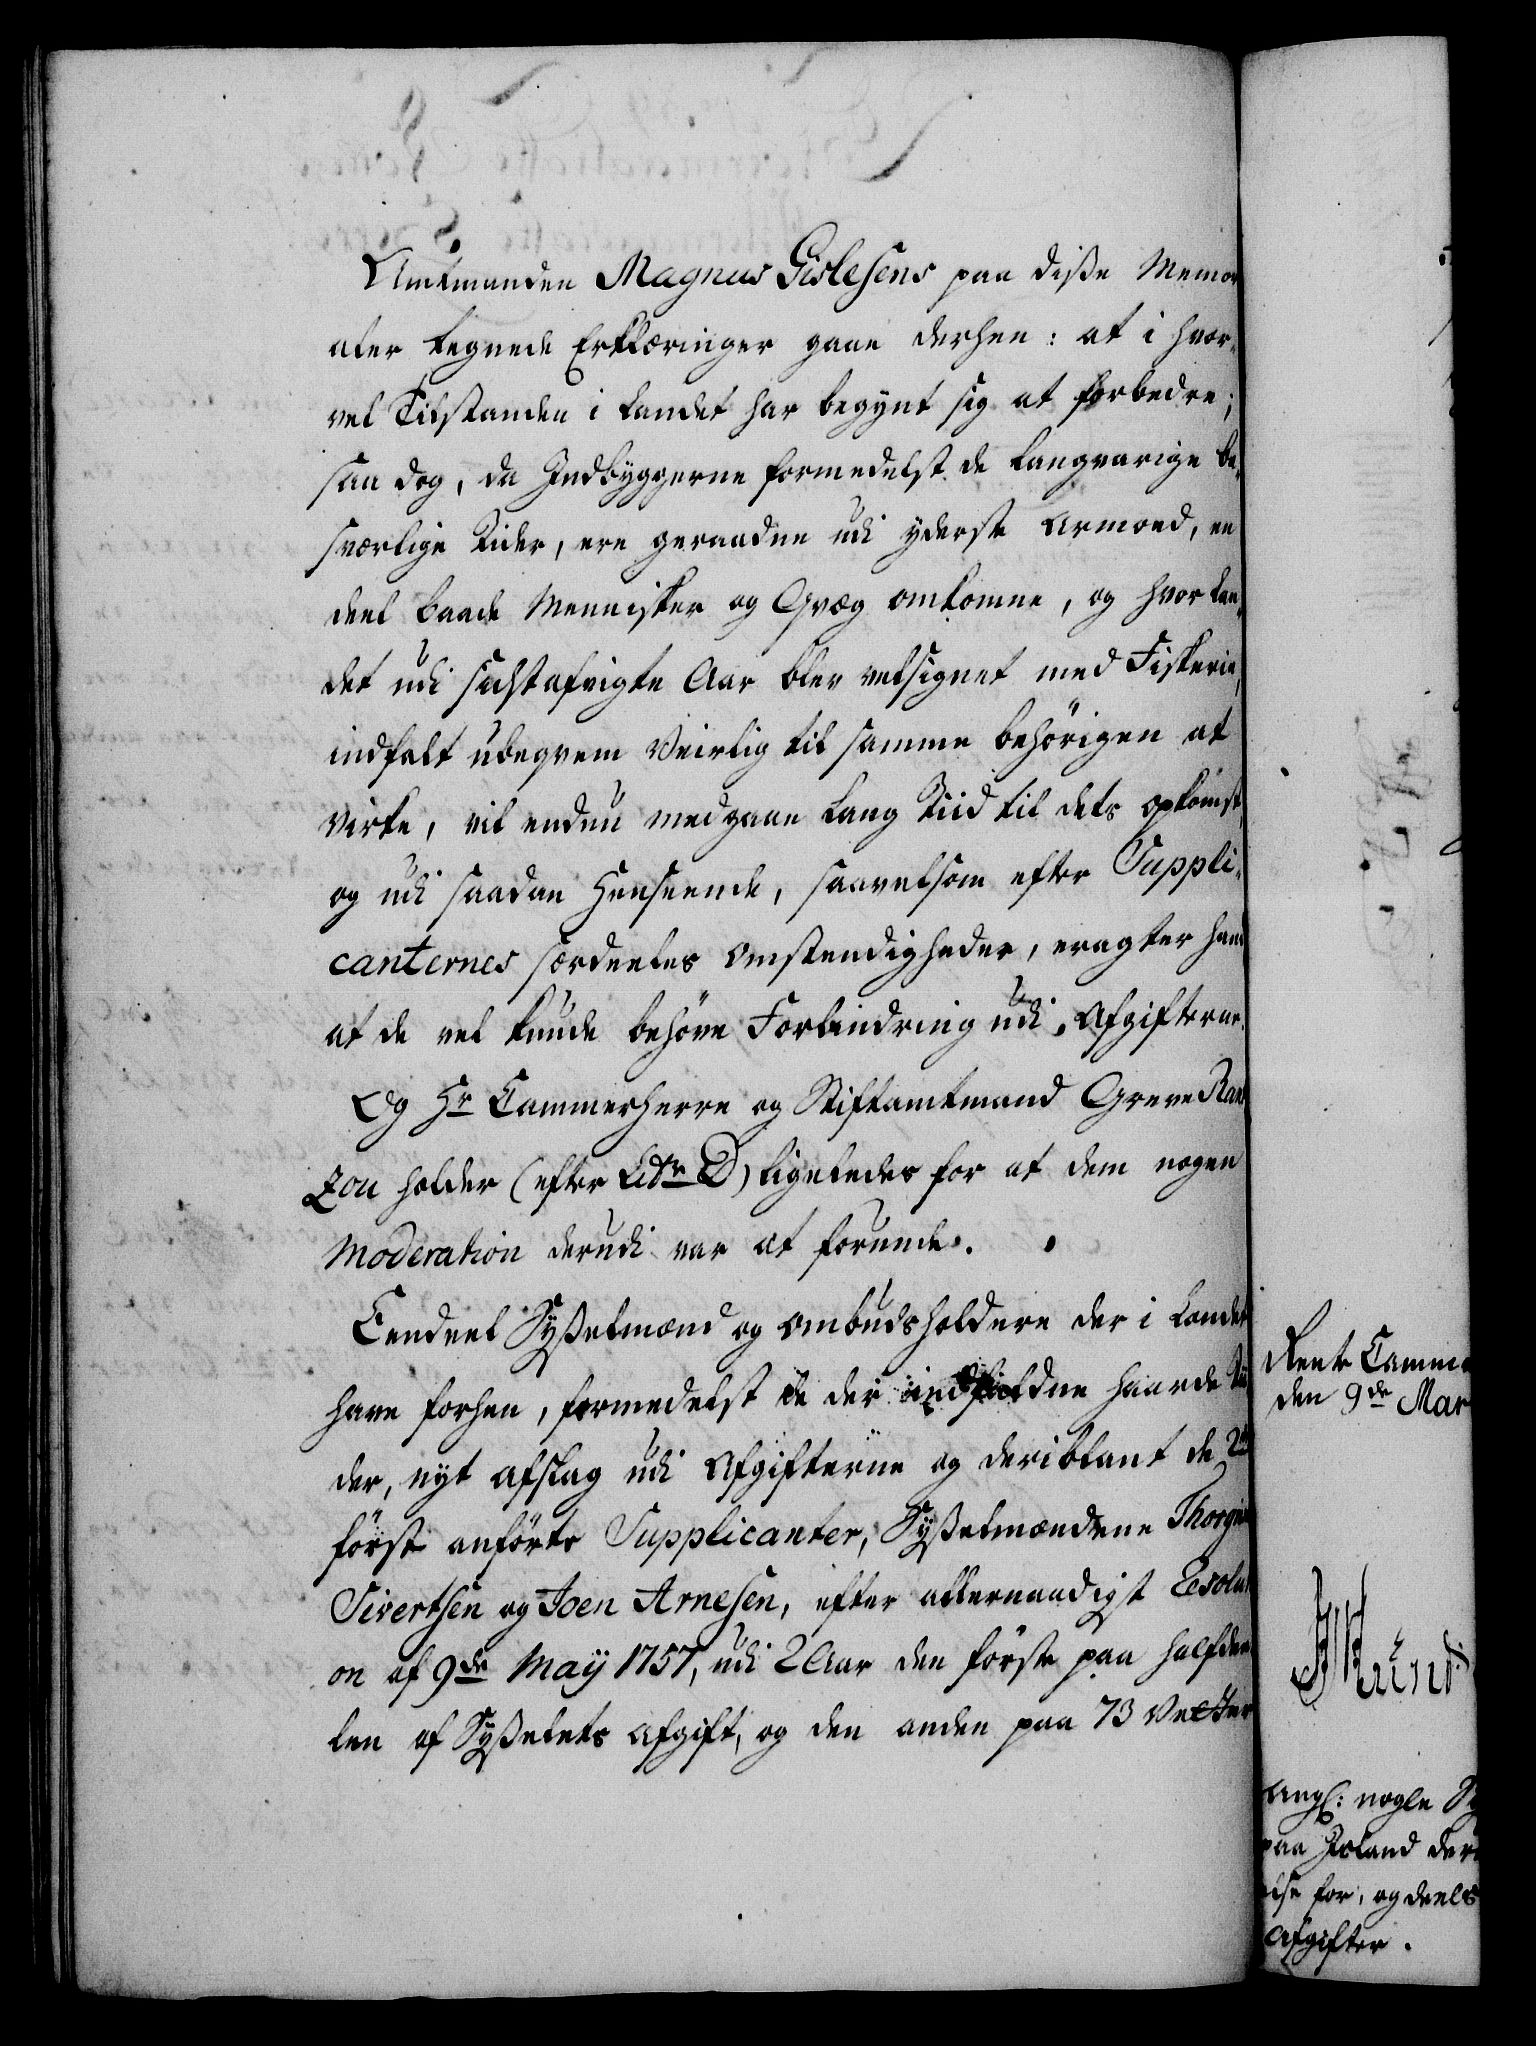 Amtmanden Magnus Gislesens paa disse Memori
aler tegnede Erklæringer gaae derhen: at i hvor-
vel Tilstanden i Landet har begynt sig at forbedre;
saa dog, da Indbyggerne formedelst de langvarige be-
sværlige Tider, ere geraadne udi yderste Armoed, en
deel baade Mennisker og Qvæg omkomne, og hvor Lan-
det udi sidstafvigte Aar blev velsignet med Fiskerie,
indfalt ubeqvem Veirlig til samme behörigen at
virke, vil endnu medgaae lang Tiid til dets opkomst,
og udi saadan Henseende, saavelsom efter Suppli-
canternes særdeeles Omstendigheder, eragter hand
at de vel kunde behöve Forlindring udi Afgifterne.
Og Hr Cammerherre og Stiftamtmand Greve Rant
zou holder (efter Litr D) ligeledes for at dem nogen
Moderation derudi var at forunde.
Eendeel Sysselmænd og Ombudsholdere der i Landet
have forhen, formedelst de der indfaldne haarde Tii-
der, nyt afslag udi Afgifterne og deriblant de 2de
först anförte Supplicanter, Sysselmændene Thorgier
Sivertsen og Joen Arnesen, efter allernaadigst Resoluti
on af 9de Maij 1757, udi 2 Aar den förste paa halfdee-
len af Sysselets Afgift, og den anden paa 73 Vetter
Rente Camme
den 9de Mar
Ang: nogle Sy
paa Island der
ise for, og deels
Afgifter.